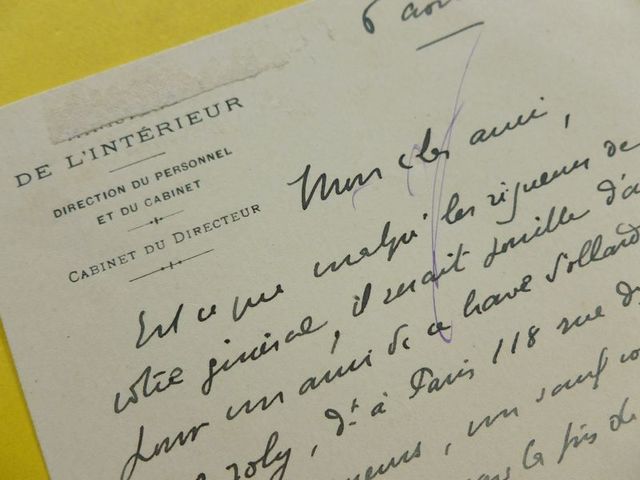 6 août
DE L'INTÉRIEUR
DIRECTION DU PERSONNEL
ET DU CABINET
CABINET DU DIRECTEUR
Mon cher ami,
Est ce que malgré les rigueurs de
votre général, il serait possible d'a
pour un ami de ce brave Sollard
Joly, dt à Paris 118 rue de
, un sauf co
le fils de